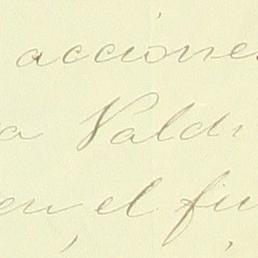 acciones
a Valdi
en el fin